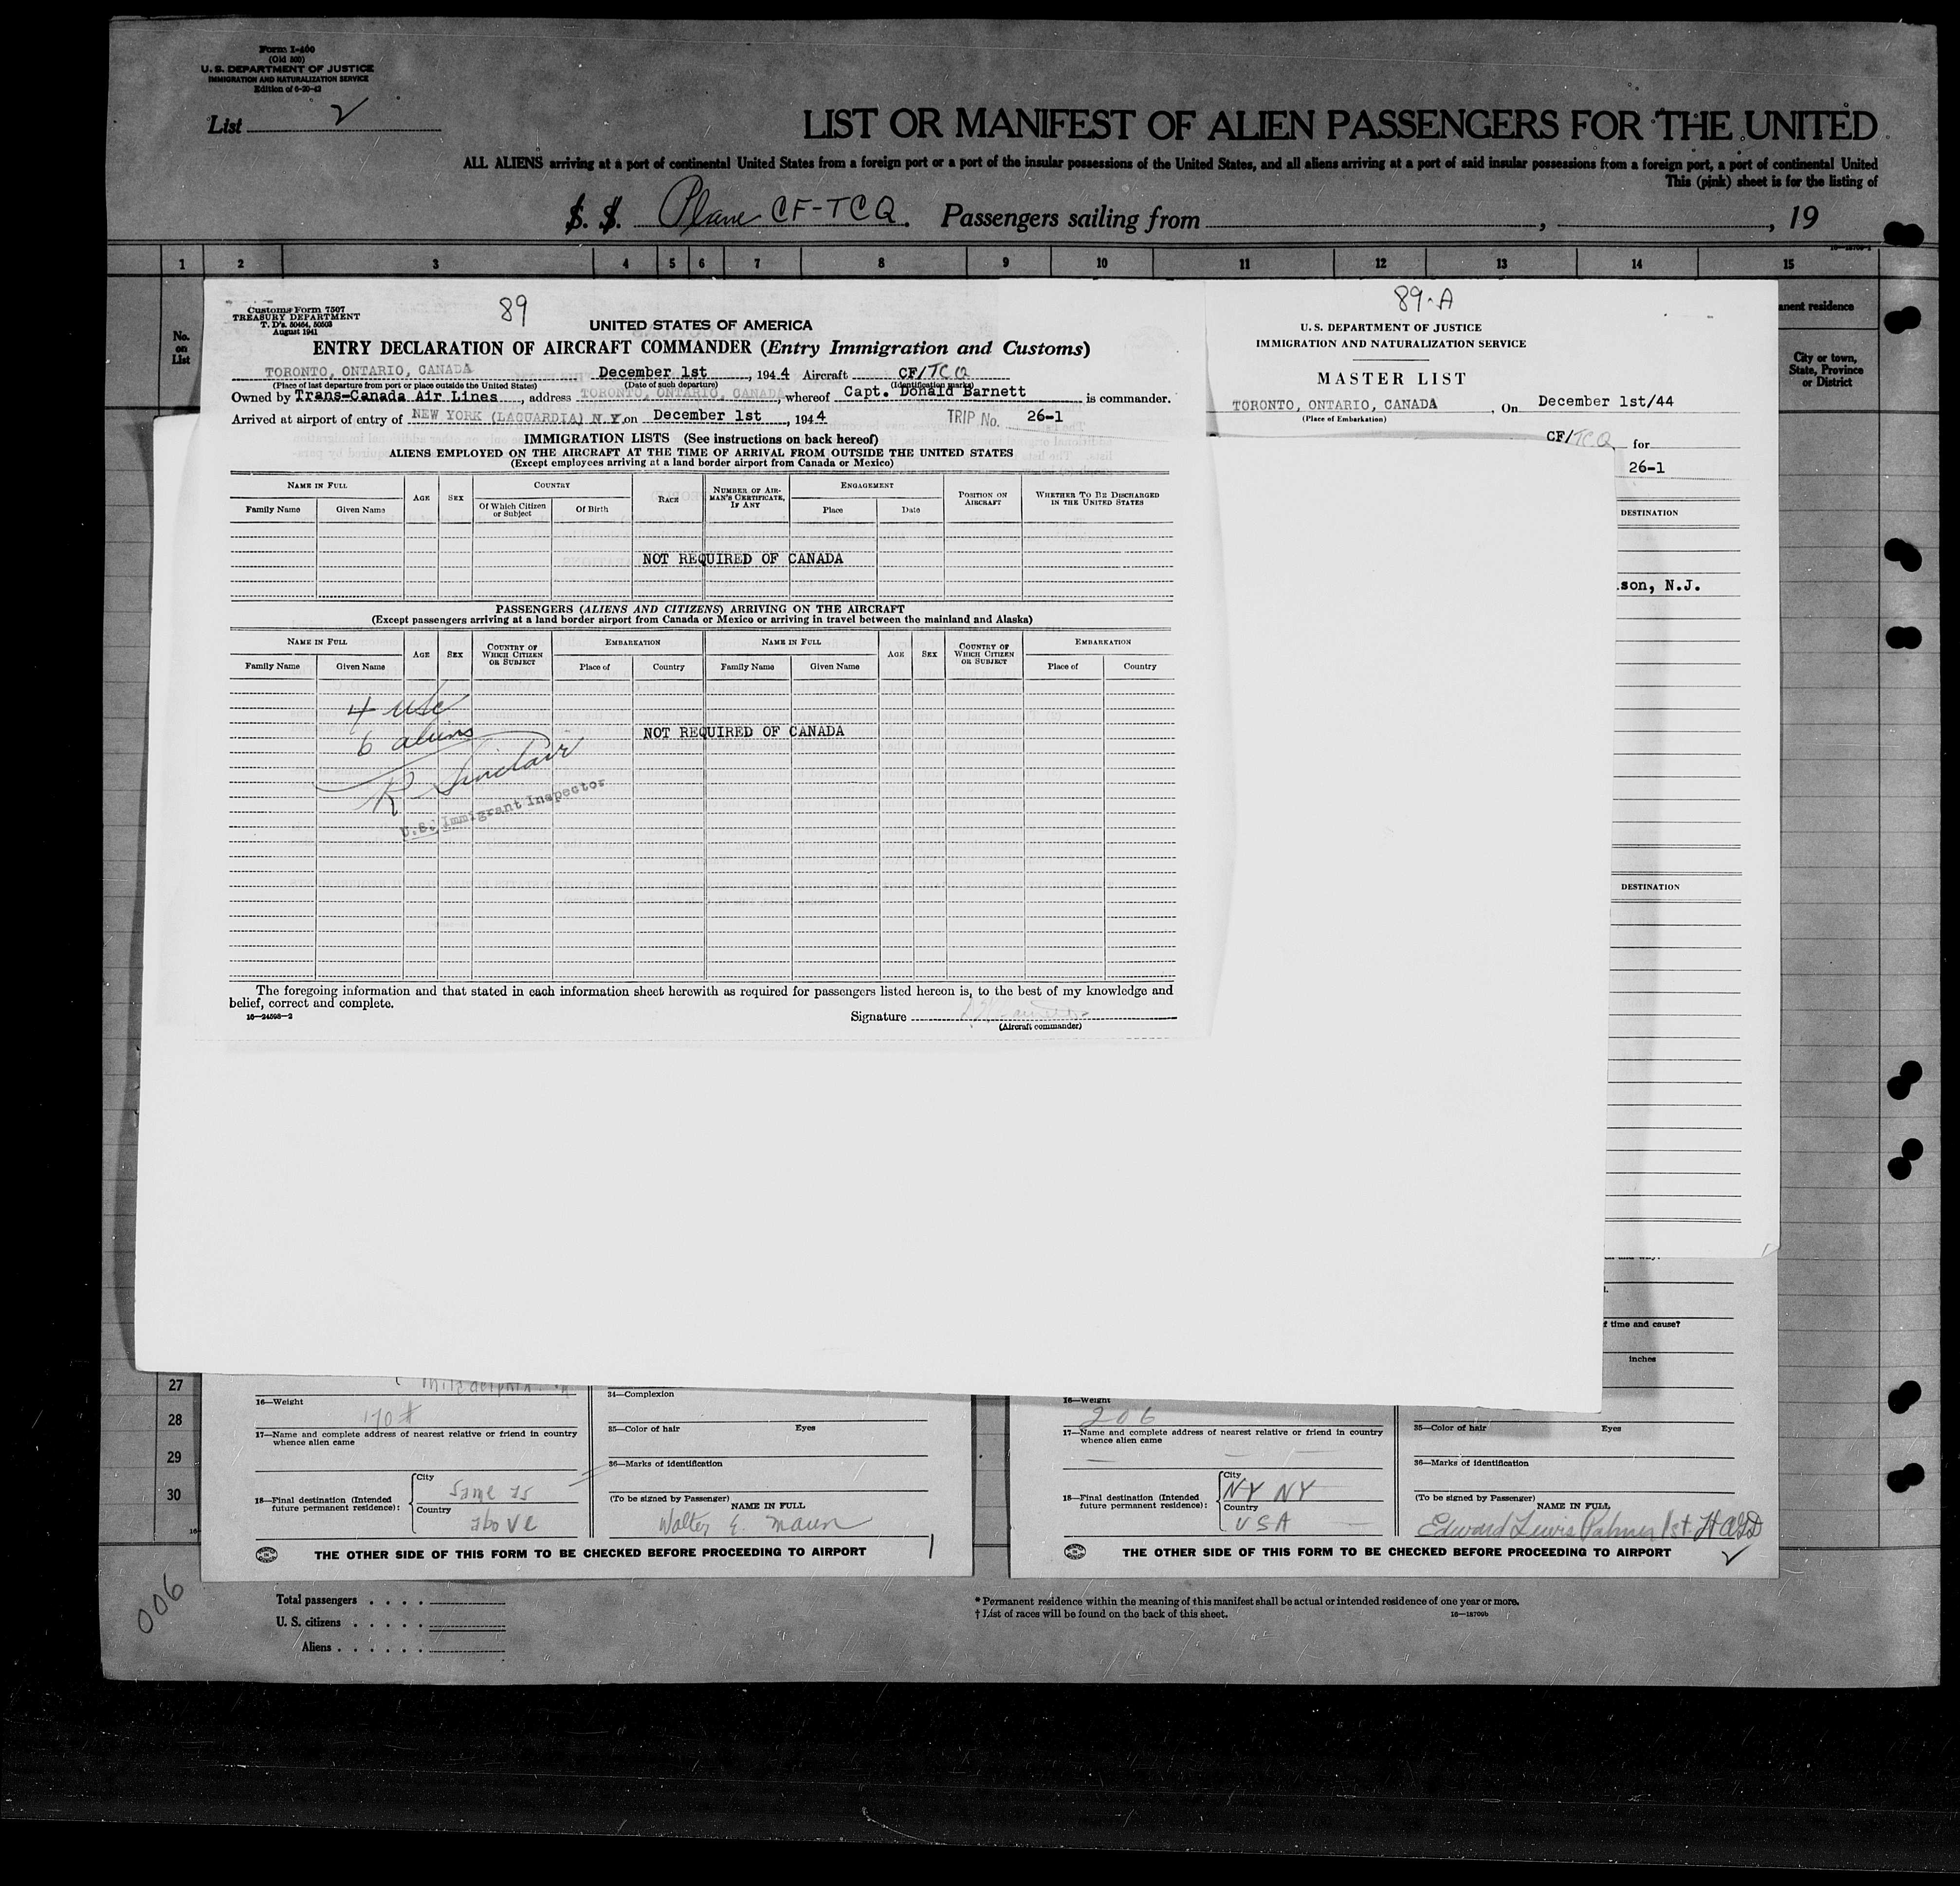 Form I-400
(Old 500)
U. S. DEPARTMENT OF JUSTICE
IMMIGRATION AND NATURALIZATION SERVICE
Edition of 6-20-42
List 2
LIST OR MANIFEST OF ALIEN PASSENGERS FOR THE UNITED
ALL ALIENS arriving at a port of continental United States from a foreign port or a port of the insular possessions of the United States, and all aliens arriving at a port of said insular possessions from a foreign port, a port of continental United
This (pink) sheet is for the listing of
S. S. Plane CF-TCQ. Passengers sailing from , , 19
1 2 3 4 5 6 7 8 9 10 11 12 13 14 15
No. on List
anent residence
City or town, State, Province or District
Customs Form 7507
TREASURY DEPARTMENT
T. D's. 50464, 50503
August 1941
89
UNITED STATES OF AMERICA
ENTRY DECLARATION OF AIRCRAFT COMMANDER (Entry Immigration and Customs)
TORONTO, ONTARIO, CANADA December 1st, 1944 Aircraft CF/TCQ
(Place of last departure from port or place outside the United States) (Date of such departure) (Identification marks)
Owned by Trans-Canada Air Lines, address TORONTO, ONTARIO, CANADA, whereof Capt. Donald Barnett is commander.
Arrived at airport of entry of NEW YORK (LAGUARDIA) N.Y. on December 1st, 1944 TRIP No. 26-1
IMMIGRATION LISTS (See instructions on back hereof)
ALIENS EMPLOYED ON THE AIRCRAFT AT THE TIME OF ARRIVAL FROM OUTSIDE THE UNITED STATES
(Except employees arriving at a land border airport from Canada or Mexico)
NAME IN FULL AGE SEX COUNTRY RACE NUMBER OF AIRMAN'S CERTIFICATE, IF ANY ENGAGEMENT POSITION ON AIRCRAFT WHETHER TO BE DISCHARGED IN THE UNITED STATES
Family Name Given Name Of Which Citizen or Subject Of Birth Place Date
NOT REQUIRED OF CANADA
PASSENGERS (ALIENS AND CITIZENS) ARRIVING ON THE AIRCRAFT
(Except passengers arriving at a land border airport from Canada or Mexico or arriving in travel between the mainland and Alaska)
NAME IN FULL AGE SEX COUNTRY OF WHICH CITIZEN OR SUBJECT EMBARKATION NAME IN FULL AGE SEX COUNTRY OF WHICH CITIZEN OR SUBJECT EMBARKATION
Family Name Given Name Place of Country Family Name Given Name Place of Country
4 USC
6 aliens
NOT REQUIRED OF CANADA
R Sinclair
U.S. Immigrant Inspector
The foregoing information and that stated in each information sheet herewith as required for passengers listed hereon is, to the best of my knowledge and
belief, correct and complete.
16—24598-2
Signature
(Aircraft commander)
89-A
U. S. DEPARTMENT OF JUSTICE
IMMIGRATION AND NATURALIZATION SERVICE
MASTER LIST
TORONTO, ONTARIO, CANADA, On December 1st/44
(Place of Embarkation)
CF/TCQ for
26-1
DESTINATION
son, N.J.
DESTINATION
f time and cause?
inches
27
28
29
30
Philadelphia
16—Weight
170#
17—Name and complete address of nearest relative or friend in country whence alien came
18—Final destination (Intended future permanent residence):
City Same as
Country above
34—Complexion
35—Color of hair Eyes
36—Marks of identification
(To be signed by Passenger)
NAME IN FULL
Walter E. Maun
THE OTHER SIDE OF THIS FORM TO BE CHECKED BEFORE PROCEEDING TO AIRPORT 1
16—Weight
206
17—Name and complete address of nearest relative or friend in country whence alien came
18—Final destination (Intended future permanent residence):
City NY NY
Country USA
35—Color of hair Eyes
36—Marks of identification
(To be signed by Passenger)
NAME IN FULL
Edward Lewis Palmer 1st.
THE OTHER SIDE OF THIS FORM TO BE CHECKED BEFORE PROCEEDING TO AIRPORT 2
006
Total passengers
U. S. citizens
Aliens
* Permanent residence within the meaning of this manifest shall be actual or intended residence of one year or more.
† List of races will be found on the back of this sheet.
16—18709b